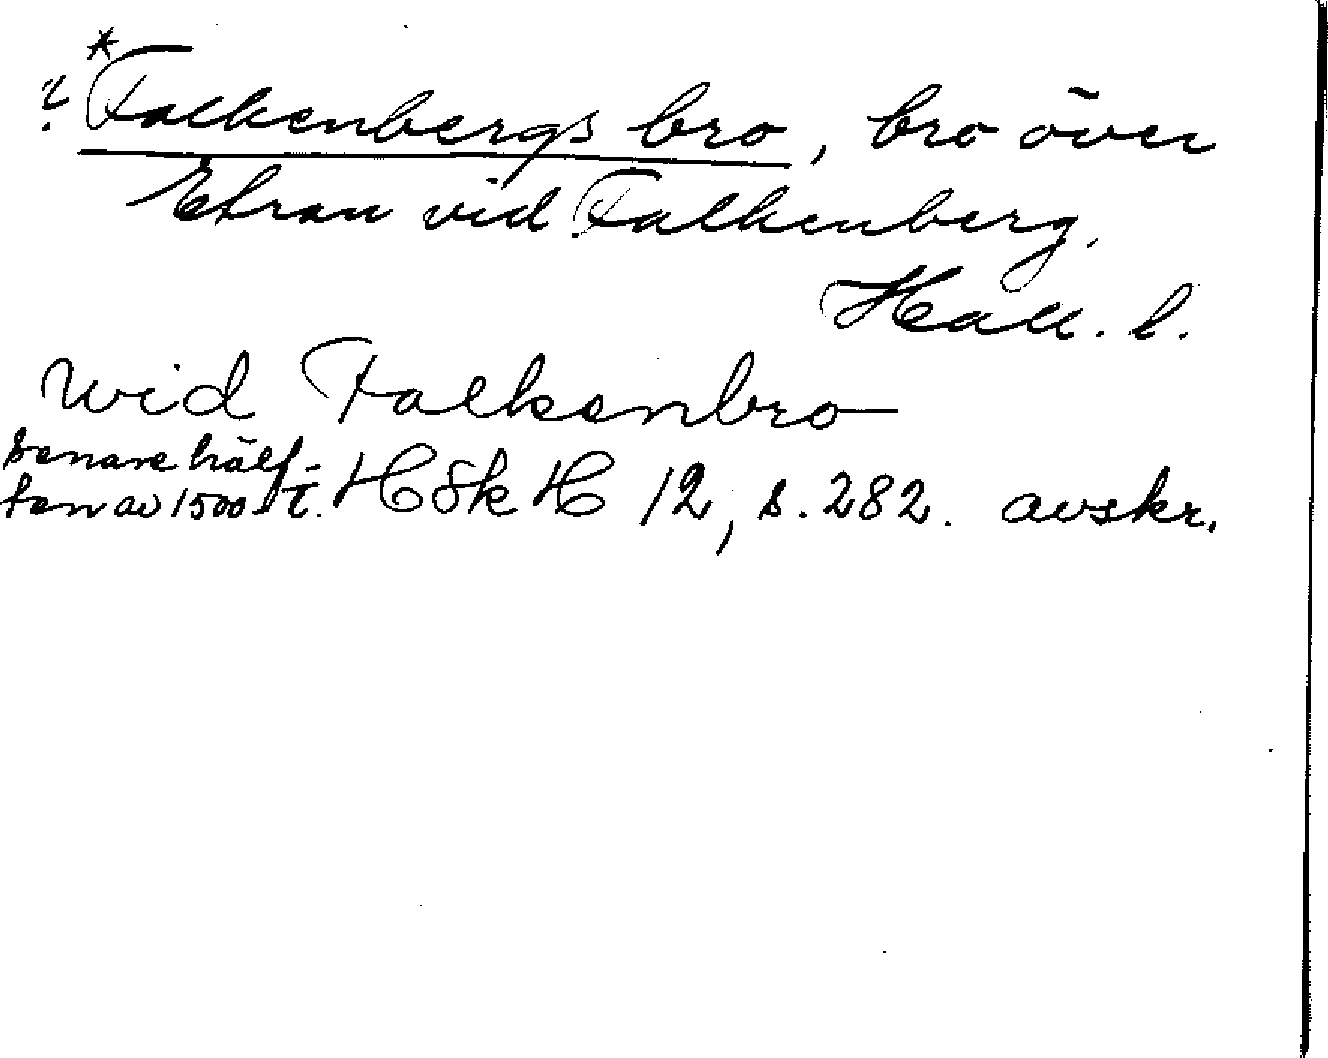 ? *Falkenbergs bro, bro över
Ätran vid Falkenberg.
Hall. l.
wid Falkenbro
senare hälf-
ten av 1500-t. HSkH 12, s. 282. avskr.